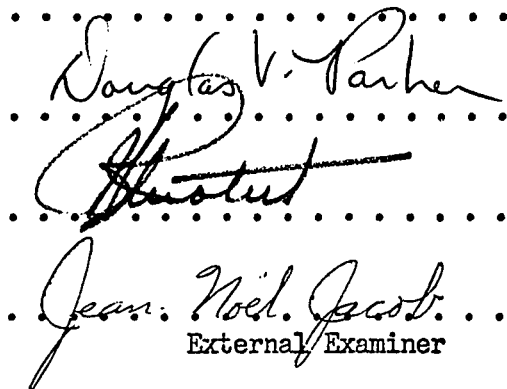 Douglas V. Parker
Jean-Noël Jacob
External Examiner